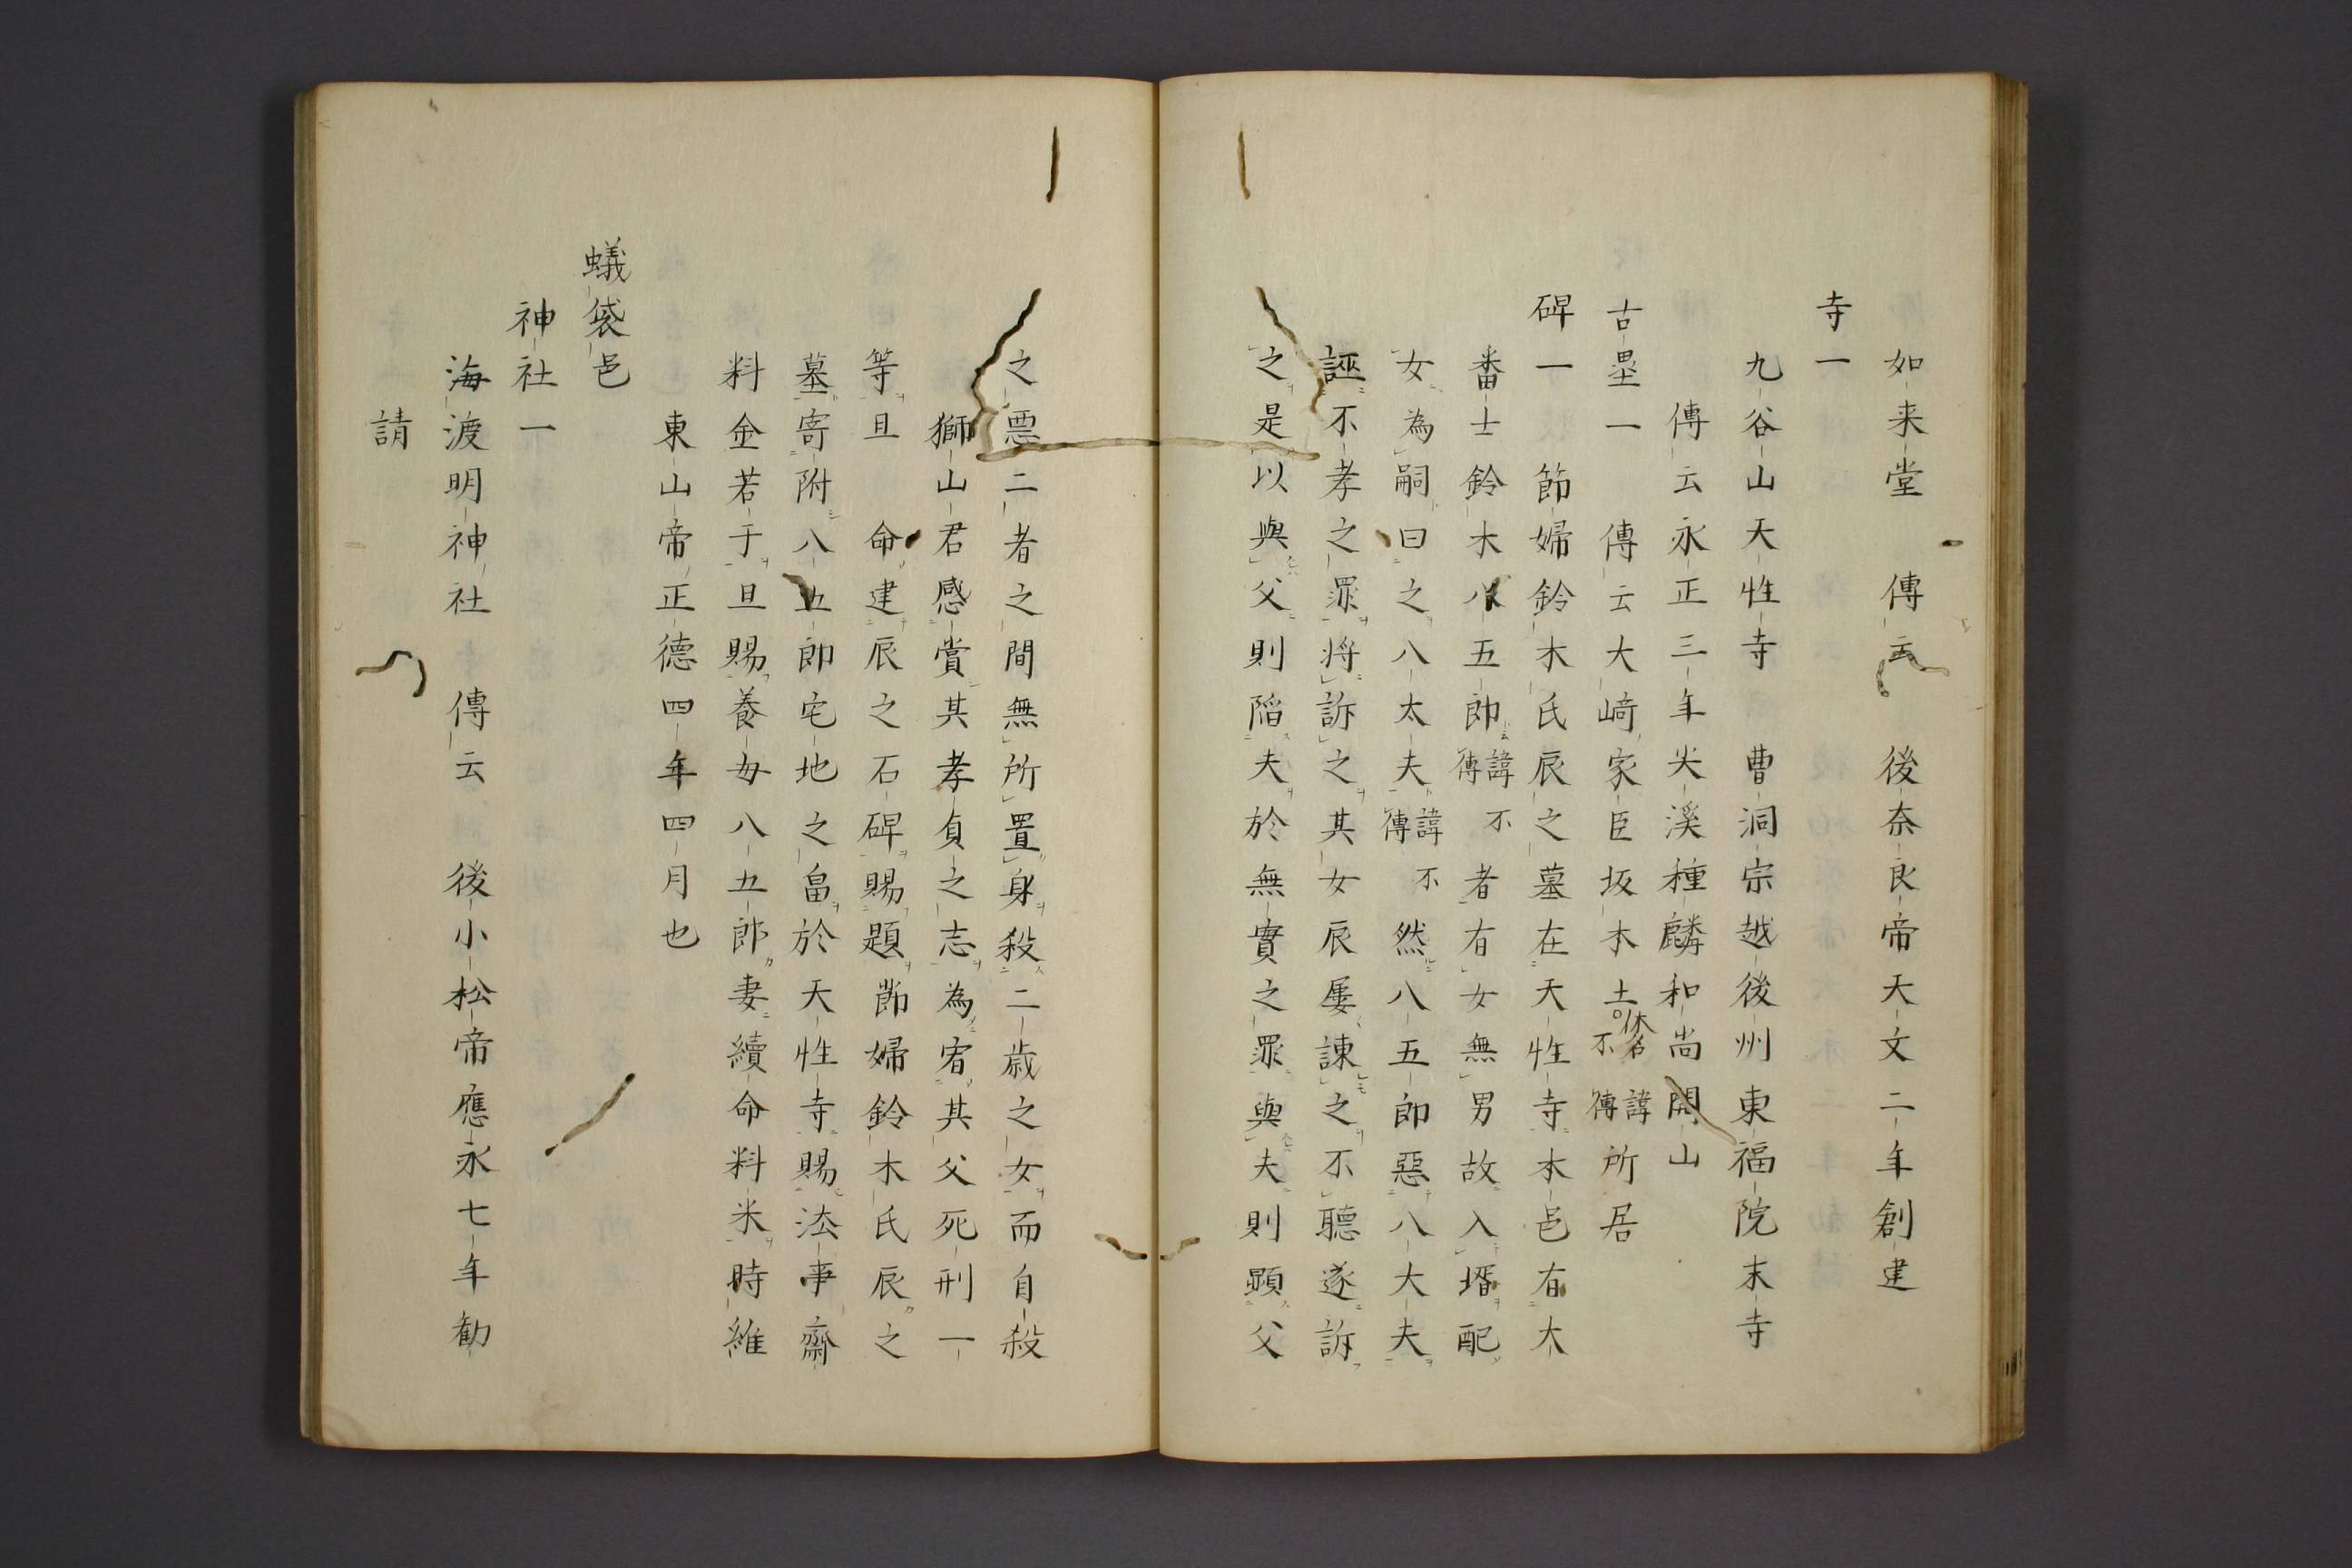 如来堂　傳云　後奈良帝天文二年創建
寺一
九谷山天性寺　曹洞宗越後州東福院末寺
傳云永正三年尖溪種麟和尚開山
古塁一　傳云大﨑家臣坂木土休名諱不傳所居
碑一　節婦鈴木氏辰之墓在天性寺本邑有大
番士鈴木八五郎諱不傳者有女無男故入壻配
女為嗣曰之八太夫諱不傳然八五郎惡八大夫
誣不孝之罪将訴之其女辰屢諌之不聽遂訴
之是以與父則陥夫於無實之罪與夫則顕父
之悪二者之間無所置身殺二歳之女而自殺
獅山君感賞其孝貞之志為宥其父死刑一
等且　命建辰之石碑賜題節婦鈴木氏辰之
墓寄附八五郎宅地之畠於天性寺賜法事齋
料金若于且賜養母八五郎妻續命料米時維
東山帝正德四年四月也
蟻袋邑
神社一
海渡明神社　傳云　後小松帝應永七年勧
請